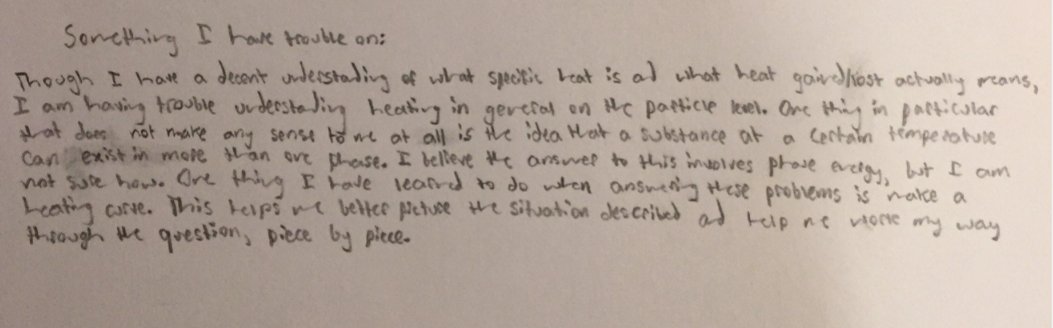 Something I have trouble on:
Though I have a decent understading of what specific heat is ad what heat gained/lost actually means,
I am having trouble understading heating in general on the particle level. One thing in particular
that does not make any sense to me at all is the idea that a substance at a certain temperature
can exist in more than one phase. I believe the answer to this involves phase energy, but I am
not sure how. One thing I have learned to do when answering these problems is make a
heating curve. This helps me better picture the situation described ad help me work my way
through the question, piece by piece.